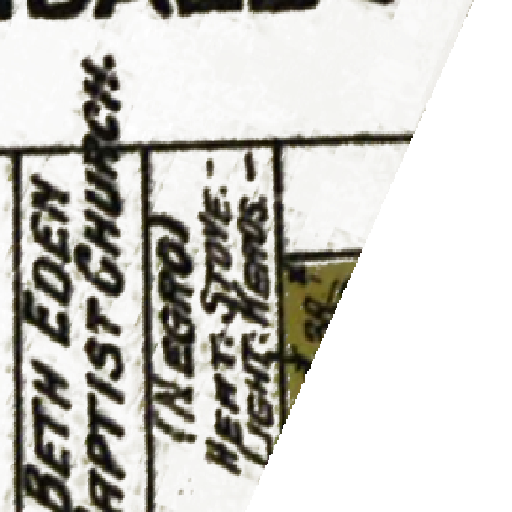 BETH EDEN
BAPTIST CHURCH.
(NEGRO)
HEAT: STOVE.-
LIGHT: KEROS.-